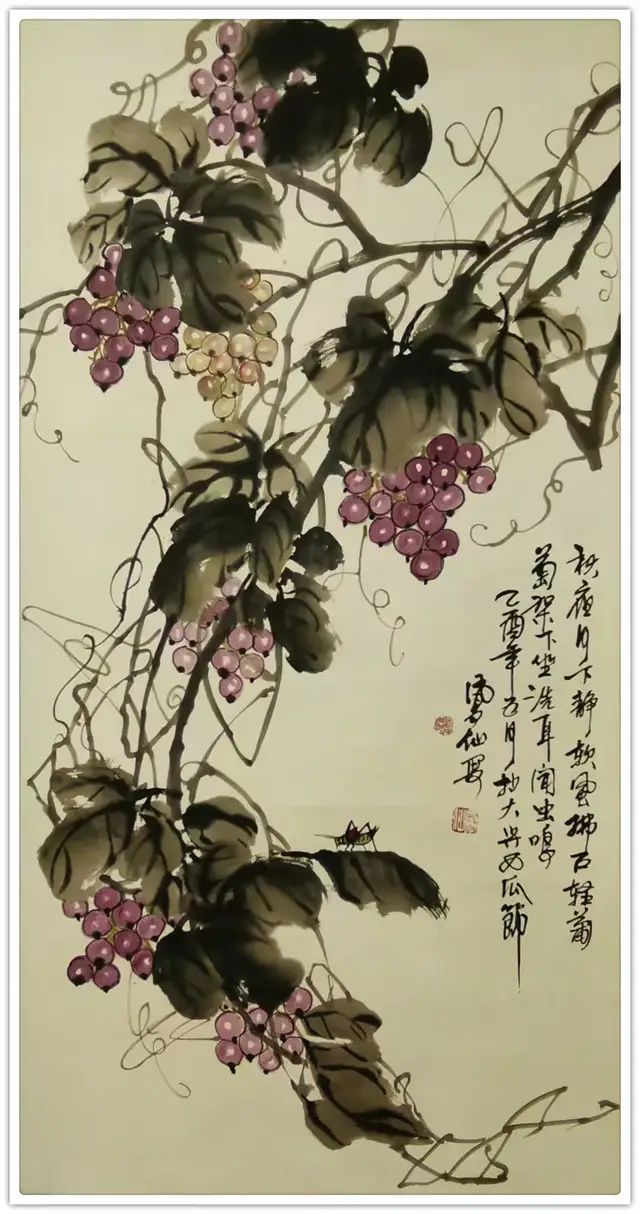 秋夜月下静软风拂轻葡
萄架下坐洗耳闻虫鸣
乙酉年五月大兴西瓜節
仙